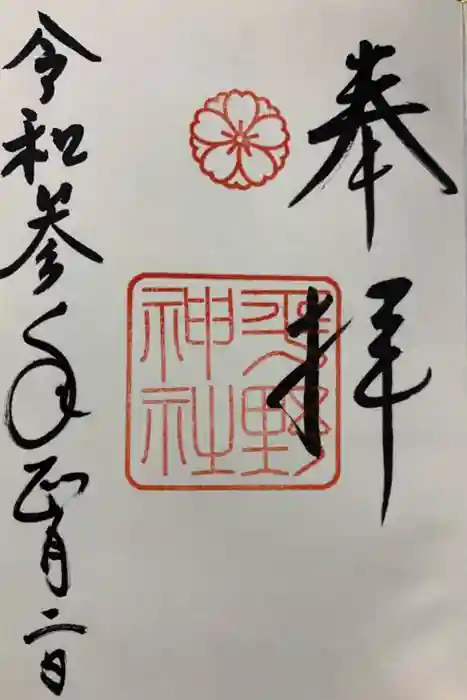 奉拝
平野神社
令和参年正月二日